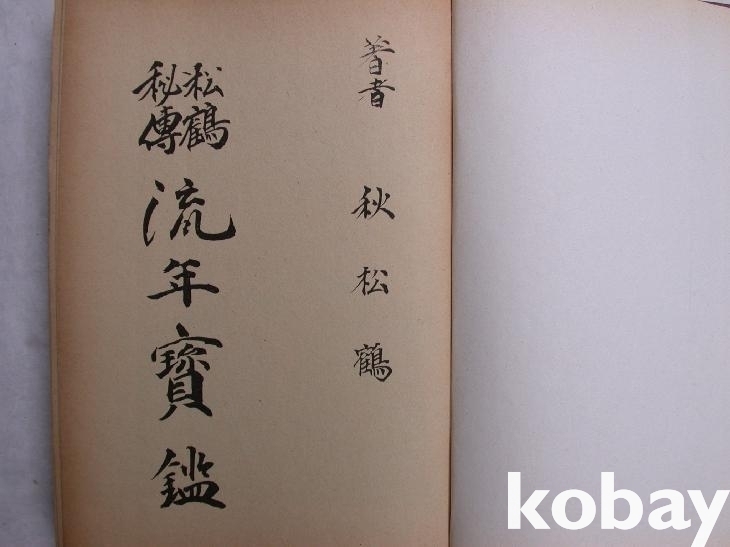 著者 秋松鶴
松鶴
秘傳
流年寶鑑
kobay